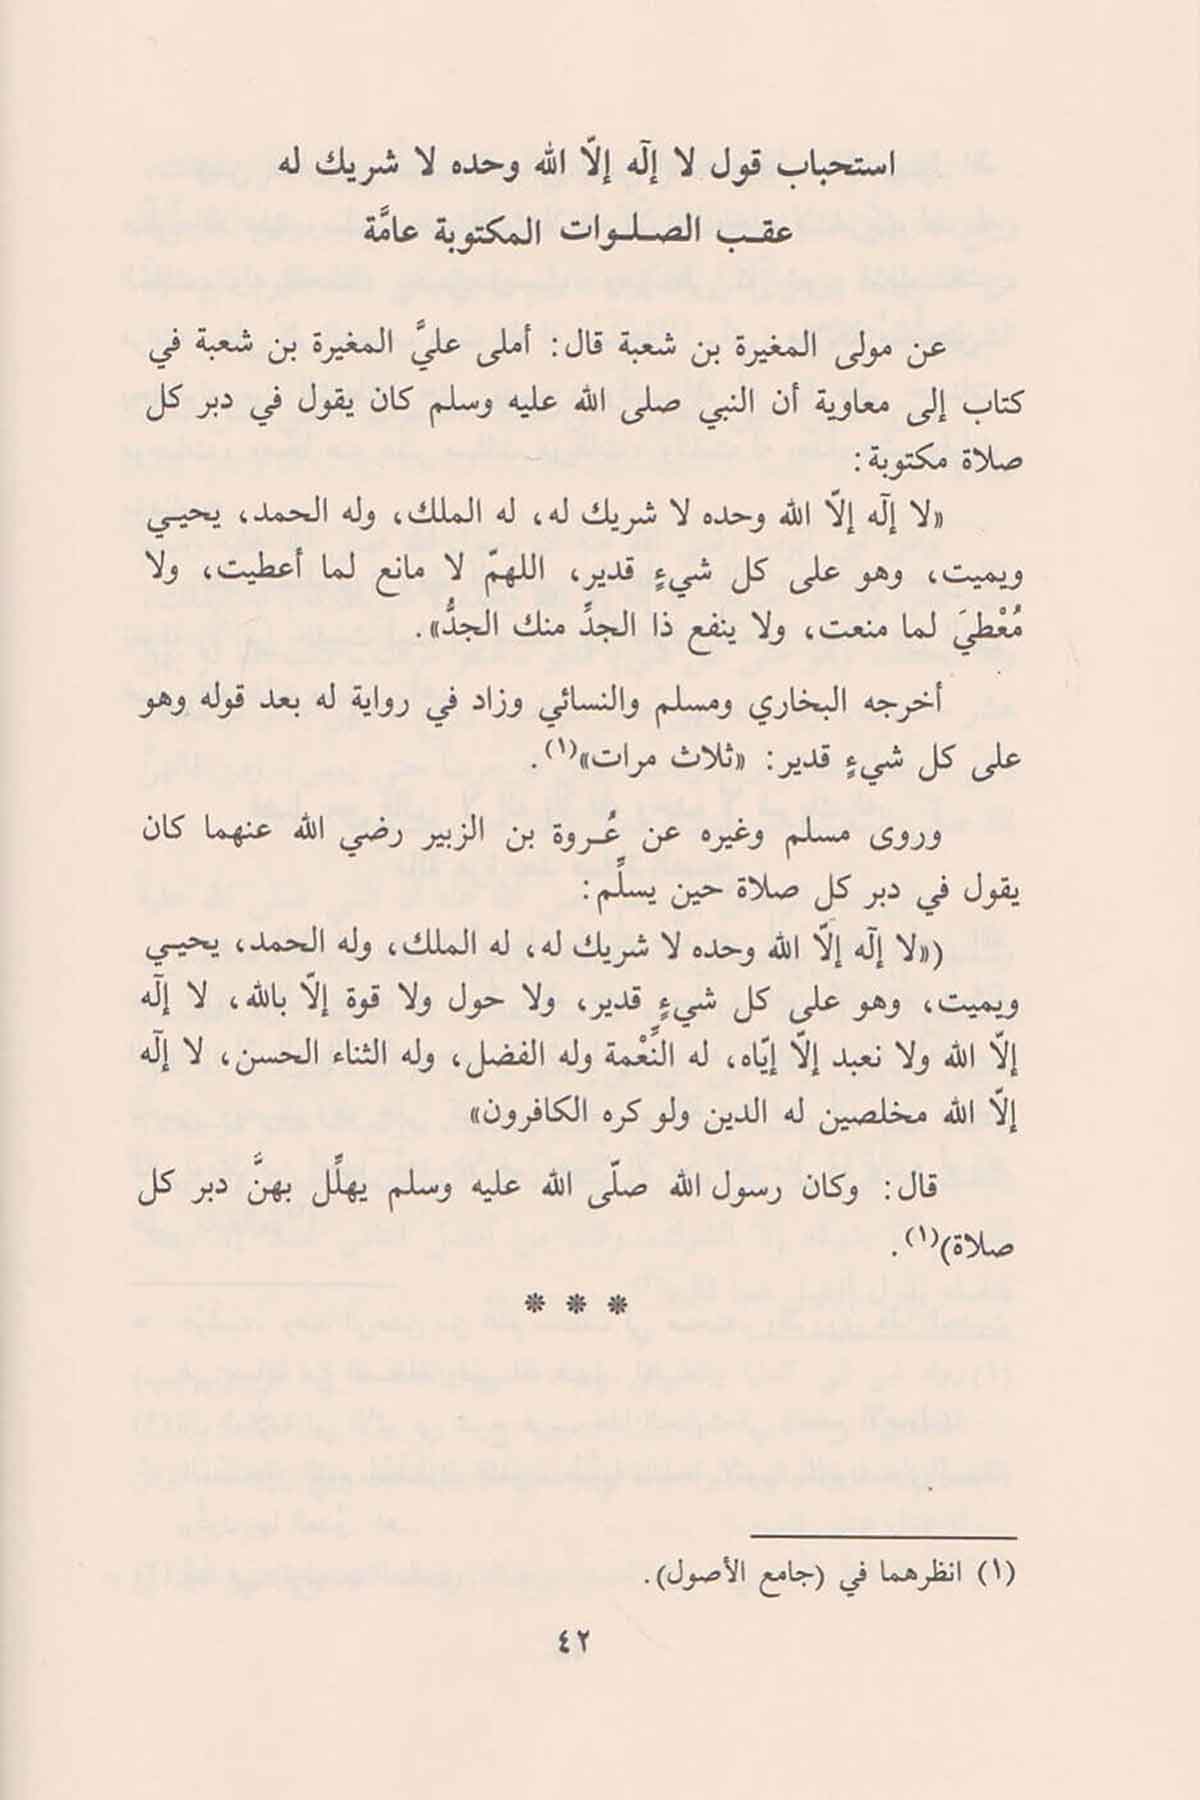 استحباب قول لا إلٓه إلاّ الله وحده لا شريك له
عقب الصلوات المكتوبة عامَّة
عن مولى المغيرة بن شعبة قال: أملى عليَّ المغيرة بن شعبة في
كتاب إلى معاوية أن النبي صلى الله عليه وسلم كان يقول في دبر كل
صلاة مكتوبة:
«لا إلٓه إلاّ الله وحده لا شريك له، له الملك، وله الحمد، يحيي
ويميت، وهو على كل شيءٍ قدير، اللهمّ لا مانع لما أعطيت، ولا
مُعْطيَ لما منعت، ولا ينفع ذا الجدِّ منك الجدُّ».
أخرجه البخاري ومسلم والنسائي وزاد في رواية له بعد قوله وهو
على كل شيءٍ قدير: «ثلاث مرات»(١).
وروى مسلم وغيره عن عُروة بن الزبير رضي الله عنهما كان
يقول في دبر كل صلاة حين يسلِّم:
(«لا إلٓه إلاّ الله وحده لا شريك له، له الملك، وله الحمد، يحيي
ويميت، وهو على كل شيءٍ قدير، ولا حول ولا قوة إلاّ بالله، لا إلٓه
إلاّ الله ولا نعبد إلاّ إيّاه، له النِّعْمة وله الفضل، وله الثناء الحسن، لا إلٓه
إلاّ الله مخلصين له الدين ولو كره الكافرون»
قال: وكان رسول الله صلّى الله عليه وسلم يهلِّل بهنَّ دبر كل
صلاة)(١).
* * *
(١) انظرهما في (جامع الأصول).
٤٢